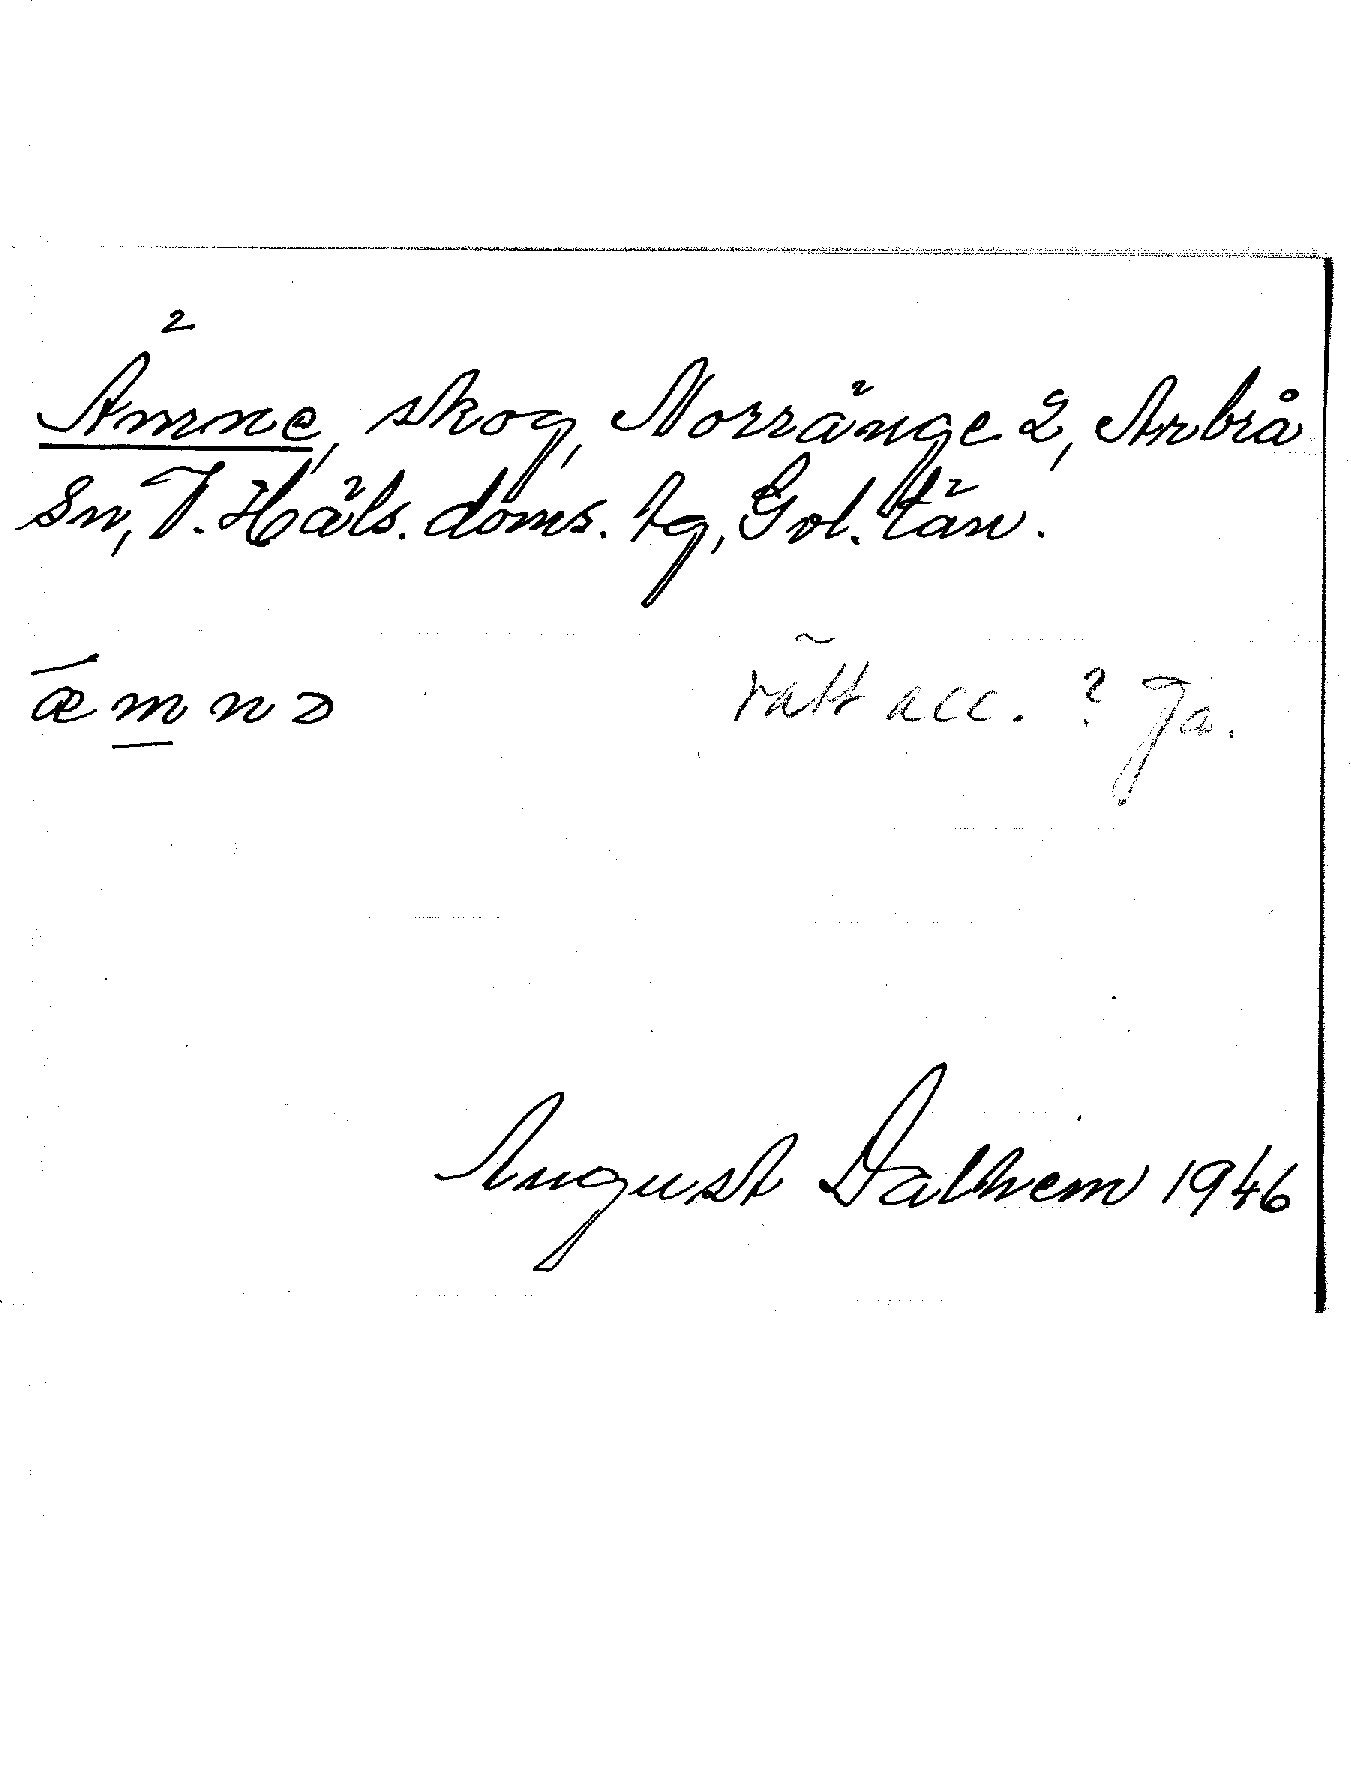 Ämne, skog, Norränge 2, Arbrå
sn, V. Häls. doms. tg, Gvl. län.
æmnə rätt acc. ? Ja.
August Dalhem 1946